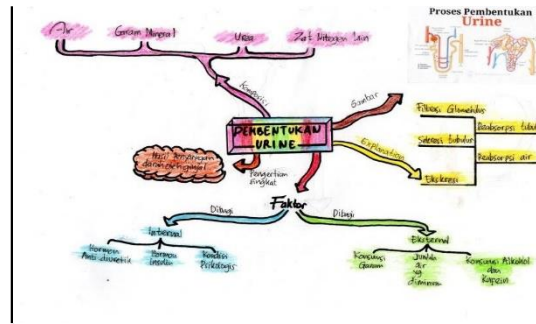 Proses Pembentukan
Urine
Air
Garam Mineral
Urea
Zat Nitrogen lain
Komposisi
Gambar
PEMBENTUKAN
URINE
Explanation
Filtrasi Glomerulus
Reabsorpsi tubulus
Sekresi tubulus
Reabsorpsi air
Ekskresi
Hasil Penyaringan
Pengertian
singkat
Faktor
Dibagi
Dibagi
Internal
Hormon
Anti diuretik
Hormon
Insulin
Kondisi
Psikologis
Eksternal
Konsumsi
Garam
Jumlah
air
yg
diminum
Konsumsi Alkohol
dan
Kafein